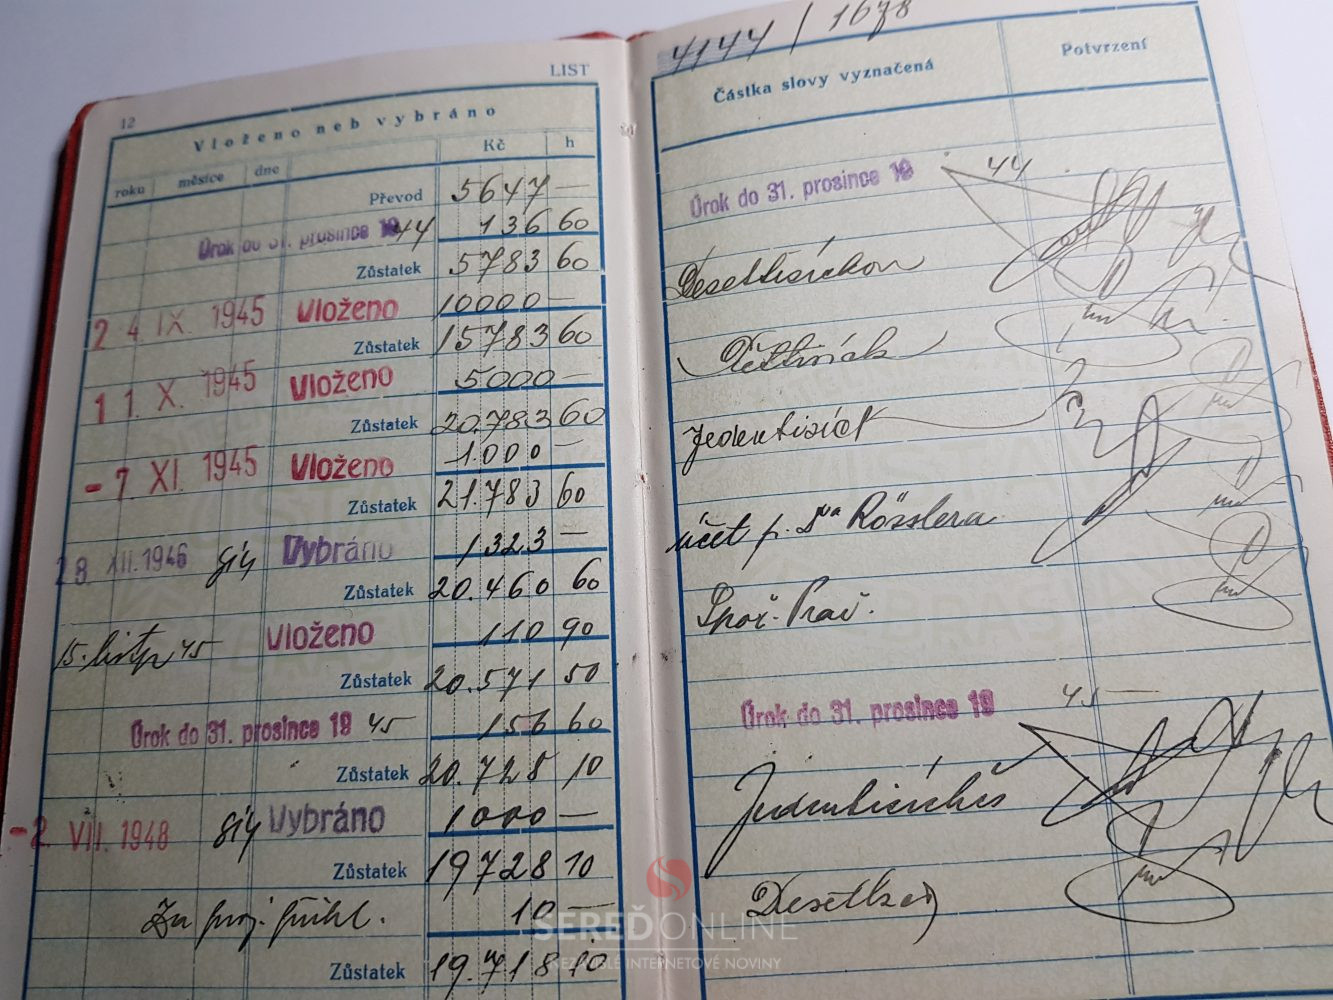 12
LIST
Vloženo neb vybráno
roku měsíce dne Kč h
Převod 5647 —
Úrok do 31. prosince 1944 136 60
Zůstatek 5783 60
24. IX. 1945 Vloženo 10000 —
Zůstatek 15783 60
11. X. 1945 Vloženo 5000 —
Zůstatek 20.783 60
- 7. XI. 1945 Vloženo 1000 -
Zůstatek 21.783 60
28 XII. 1946 Vybráno 1323 —
Zůstatek 20.460 60
15. listp 45 Vloženo 110 90
Zůstatek 20.571 50
Úrok do 31. prosince 19 45 156 60
Zůstatek 20.728 10
- 2. VII. 1948 Vybráno 1000 —
Zůstatek 19728 10
Za 10 —
Zůstatek 19.718 10
4144 / 1678
Částka slovy vyznačená Potvrzení
Úrok do 31. prosince 19 44
Desettisíckorun
Pěttisíck
Jedentisíct
účet p. Dra Rösslera
Spoř. Prav.
Úrok do 31. prosince 19 45 —
Jedentisíckčs
Desetkčs
SEREĎONLINE
NEZÁVISLÉ INTERNETOVÉ NOVINY